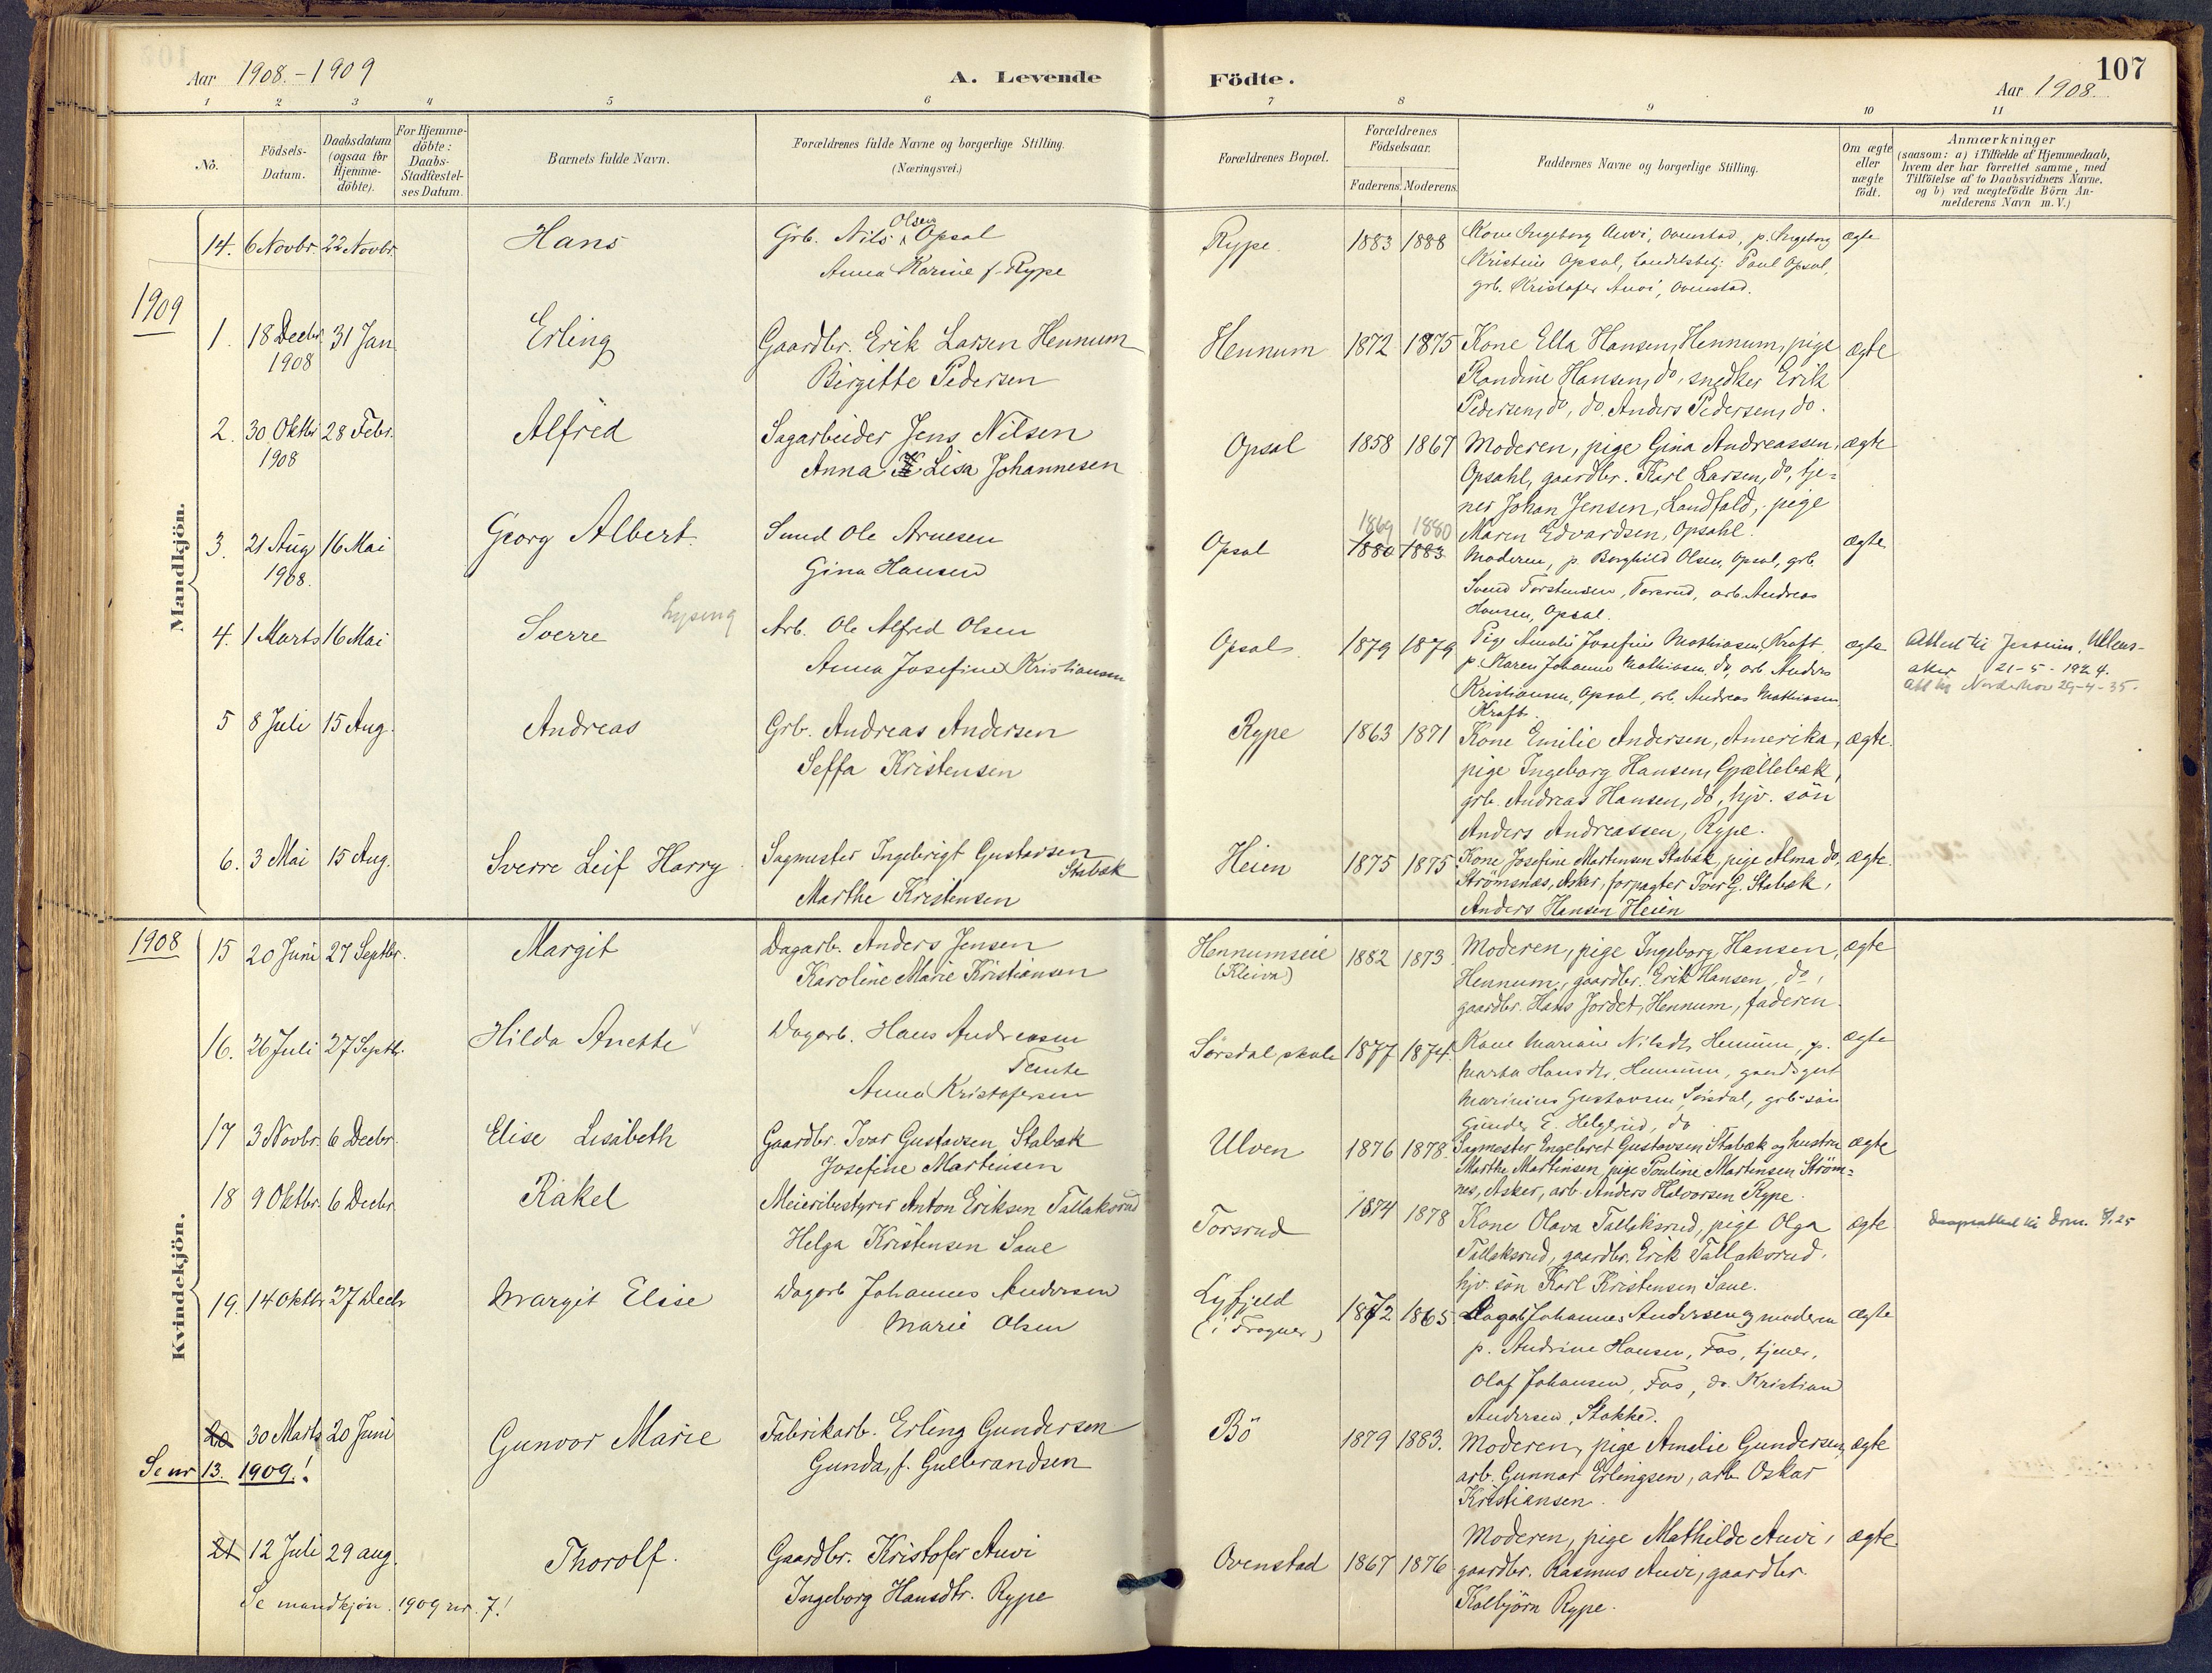 Aar 1908.-1909
A. Levende
Födte.
107
Aar 1908.
1 2 3 4 5 6 7 8 9 10 11
No.
Födsels-Datum.
Daabsdatum (ogsaa for Hjemme-döbte).
For Hjemme-döbte: Daabs-Stadfæstel-ses Datum.
Barnets fulde Navn.
Forældrenes fulde Navne og borgerlige Stilling. (Næringsvei.)
Forældrenes Bopæl.
Forældrenes Födselsaar.
Faderens. Moderens.
Faddernes Navne og borgerlige Stilling.
Om ægte eller uægte födt.
Anmærkninger
(saasom: a) i Tilfælde af Hjemmedaab,
hvem der har forrettet samme, med
Tilföielse af to Daabsvidners Navne,
og b) ved uægtefödte Börn An-
melderens Navn m. V.)
Mandkjön.
14. 6 Novbr. 22 Novbr. Hans
Grb. Nils Olsen Opsal
Anna Karine f. Rype
Rype 1883 1888
Kone Ingeborg Auvi, Ovenstad, p. Ingeborg
Kristine Opsal, Paul Opsal,
grb. Kristofer Auvi, Ovenstad.
ægte
1909
1. 18 Decbr. 1908 31 Jan Erling
Gaardbr. Erik Larsen Hennum
Birgitte Pedersen
Hennum 1872 1875
Kone Ella Hansen, Hennum, pige
Randine Hansen, do, snedker Erik
Pedersen, do, do. Anders Pedersen, do.
ægte
2. 30 Oktbr 1908 28 Febr. Alfred
Sagarbeider Jens Nilsen
Anna Lisa Johannesen
Opsal 1858 1867
Moderen, pige Gina Andreassen,
Opsahl, gaardbr. Karl Larsen, do, tje=
ner Johan Jensen, Landfald, pige
Maren Edvardsen, Opsahl.
ægte
3. 21 Aug 1908. 16 Mai Georg Albert.
Smed Ole Arnesen
Gina Hansen
Opsal 1869 1880
1880 1883
Moderen, p. Borghild Olsen, Opsal, grb.
Svend Torstensen, Torsrud, arb. Andreas
Hansen, Opsal.
ægte
4. 1 Marts 16 Mai Sverre Lysing
Arb. Ole Alfred Olsen
Anna Josefine Kristiansen
Opsal 1879 1879
Pige Amalie Josefine Mathiasen, Kraft,
p. Karen Johanne Mathiasen, do, arb. Anders
Kristiansen, Opsal, arb. Andreas Mathiasen
Kraft.
ægte
Attest til Jessheim, Ullens-
aker 21-5-1924.
Att til Norderhov 29-4-35.
5 8 Juli 15 Aug. Andreas
Grb. Andreas Andersen
Seffa Kristensen
Rype 1863 1871
Kone Emilie Andersen, Amerika,
pige Ingeborg Hansen, Gjællebæk,
grb. Andreas Hansen, do, hjv. sön
Anders Andreassen, Rype.
ægte.
6. 3 Mai 15 Aug. Sverre Leif Harry
Sagmester Ingebrigt Gustavsen
Stabæk
Marthe Kristensen
Heien 1875 1875
Kone Josefine Martensen Stabæk, pige Alma do,
Strömsnæs, Asker, forpagter Iver G. Stabæk,
Anders Hansen Heien
ægte.
Kvindekjön.
1908
15 20 Juni 27 Septbr. Margit
Dagarb. Anders Jensen
Karoline Marie Kristiansen
Hennumseie
(Kleiva)
1882 1873
Moderen, pige Ingeborg Hansen,
Hennum, gaardbr. Erik Hansen, do,
gaardbr. Hans Jordet, Hennum, faderen.
ægte
16. 26 Juli 27 Septbr. Hilda Anette
Dagarb. Hans Andreasen
Tømte
Anna Kristofersen
Sørsdal skole 1877 1874
Kone Mariane Nilsdtr. Hennum, p.
Marta Hansdtr. Hennum, gaardsgut
Marinius Gustavsen Sörsdal, grb. sön
Gunder E. Helgerud, do
ægte
17 3 Novbr. 6 Decbr. Elise Lisabeth
Gaardbr. Ivar Gustavsen Stabæk
Josefine Martinsen
Ulven 1876 1878.
Sagmester Engebret Gustavsen Stabæk og hustru
Marthe Martinsen, pige Pauline Martinsen Ström=
nes, Asker, arb. Anders Halvorsen Rype.
ægte
18 9 Oktbr. 6 Decbr Rakel
Meieribestyrer Anton Eriksen Tallaksrud
Helga Kristensen Saue
Torsrud 1874 1878
Kone Olava Tallaksrud, pige Olga
Tallaksrud, gaardbr. Erik Tallaksrud,
hjv. sön Karl Kristensen Saue.
ægte
Daapsattest til Drm. 25
19. 14 Oktbr 27 Decbr Margit Elise
Dagarb Johannes Andersen
Marie Olsen
Lyfjeld
(i Frogner)
1872 1865
Dagarb Johannes Andersen og moderen
p. Andrine Hansen, Fos, tjener,
Olaf Johansen, Fos, do. Kristian
Andersen, Stokke.
ægte
20 30 Marts 20 Juni Gunvor Marie
Se nr 13. 1909!
Fabrikarb. Erling Gundersen
Gunda, f. Gulbrandsen
Bö 1879 1883.
Moderen, pige Amelie Gundersen,
arb. Gunnar Erlingsen, arb. Oskar
Kristiansen.
ægte
21 12 Juli 29 aug. Thorolf.
Se mandkjön. 1909 nr. 7!
Gaardbr. Kristofer Auvi
Ingeborg Hansdtr. Rype
Ovenstad 1867 1876
Moderen, pige Mathilde Auvi,
gaardbr. Rasmus Auvi, gaardbr.
Kolbjörn Rype.
ægte